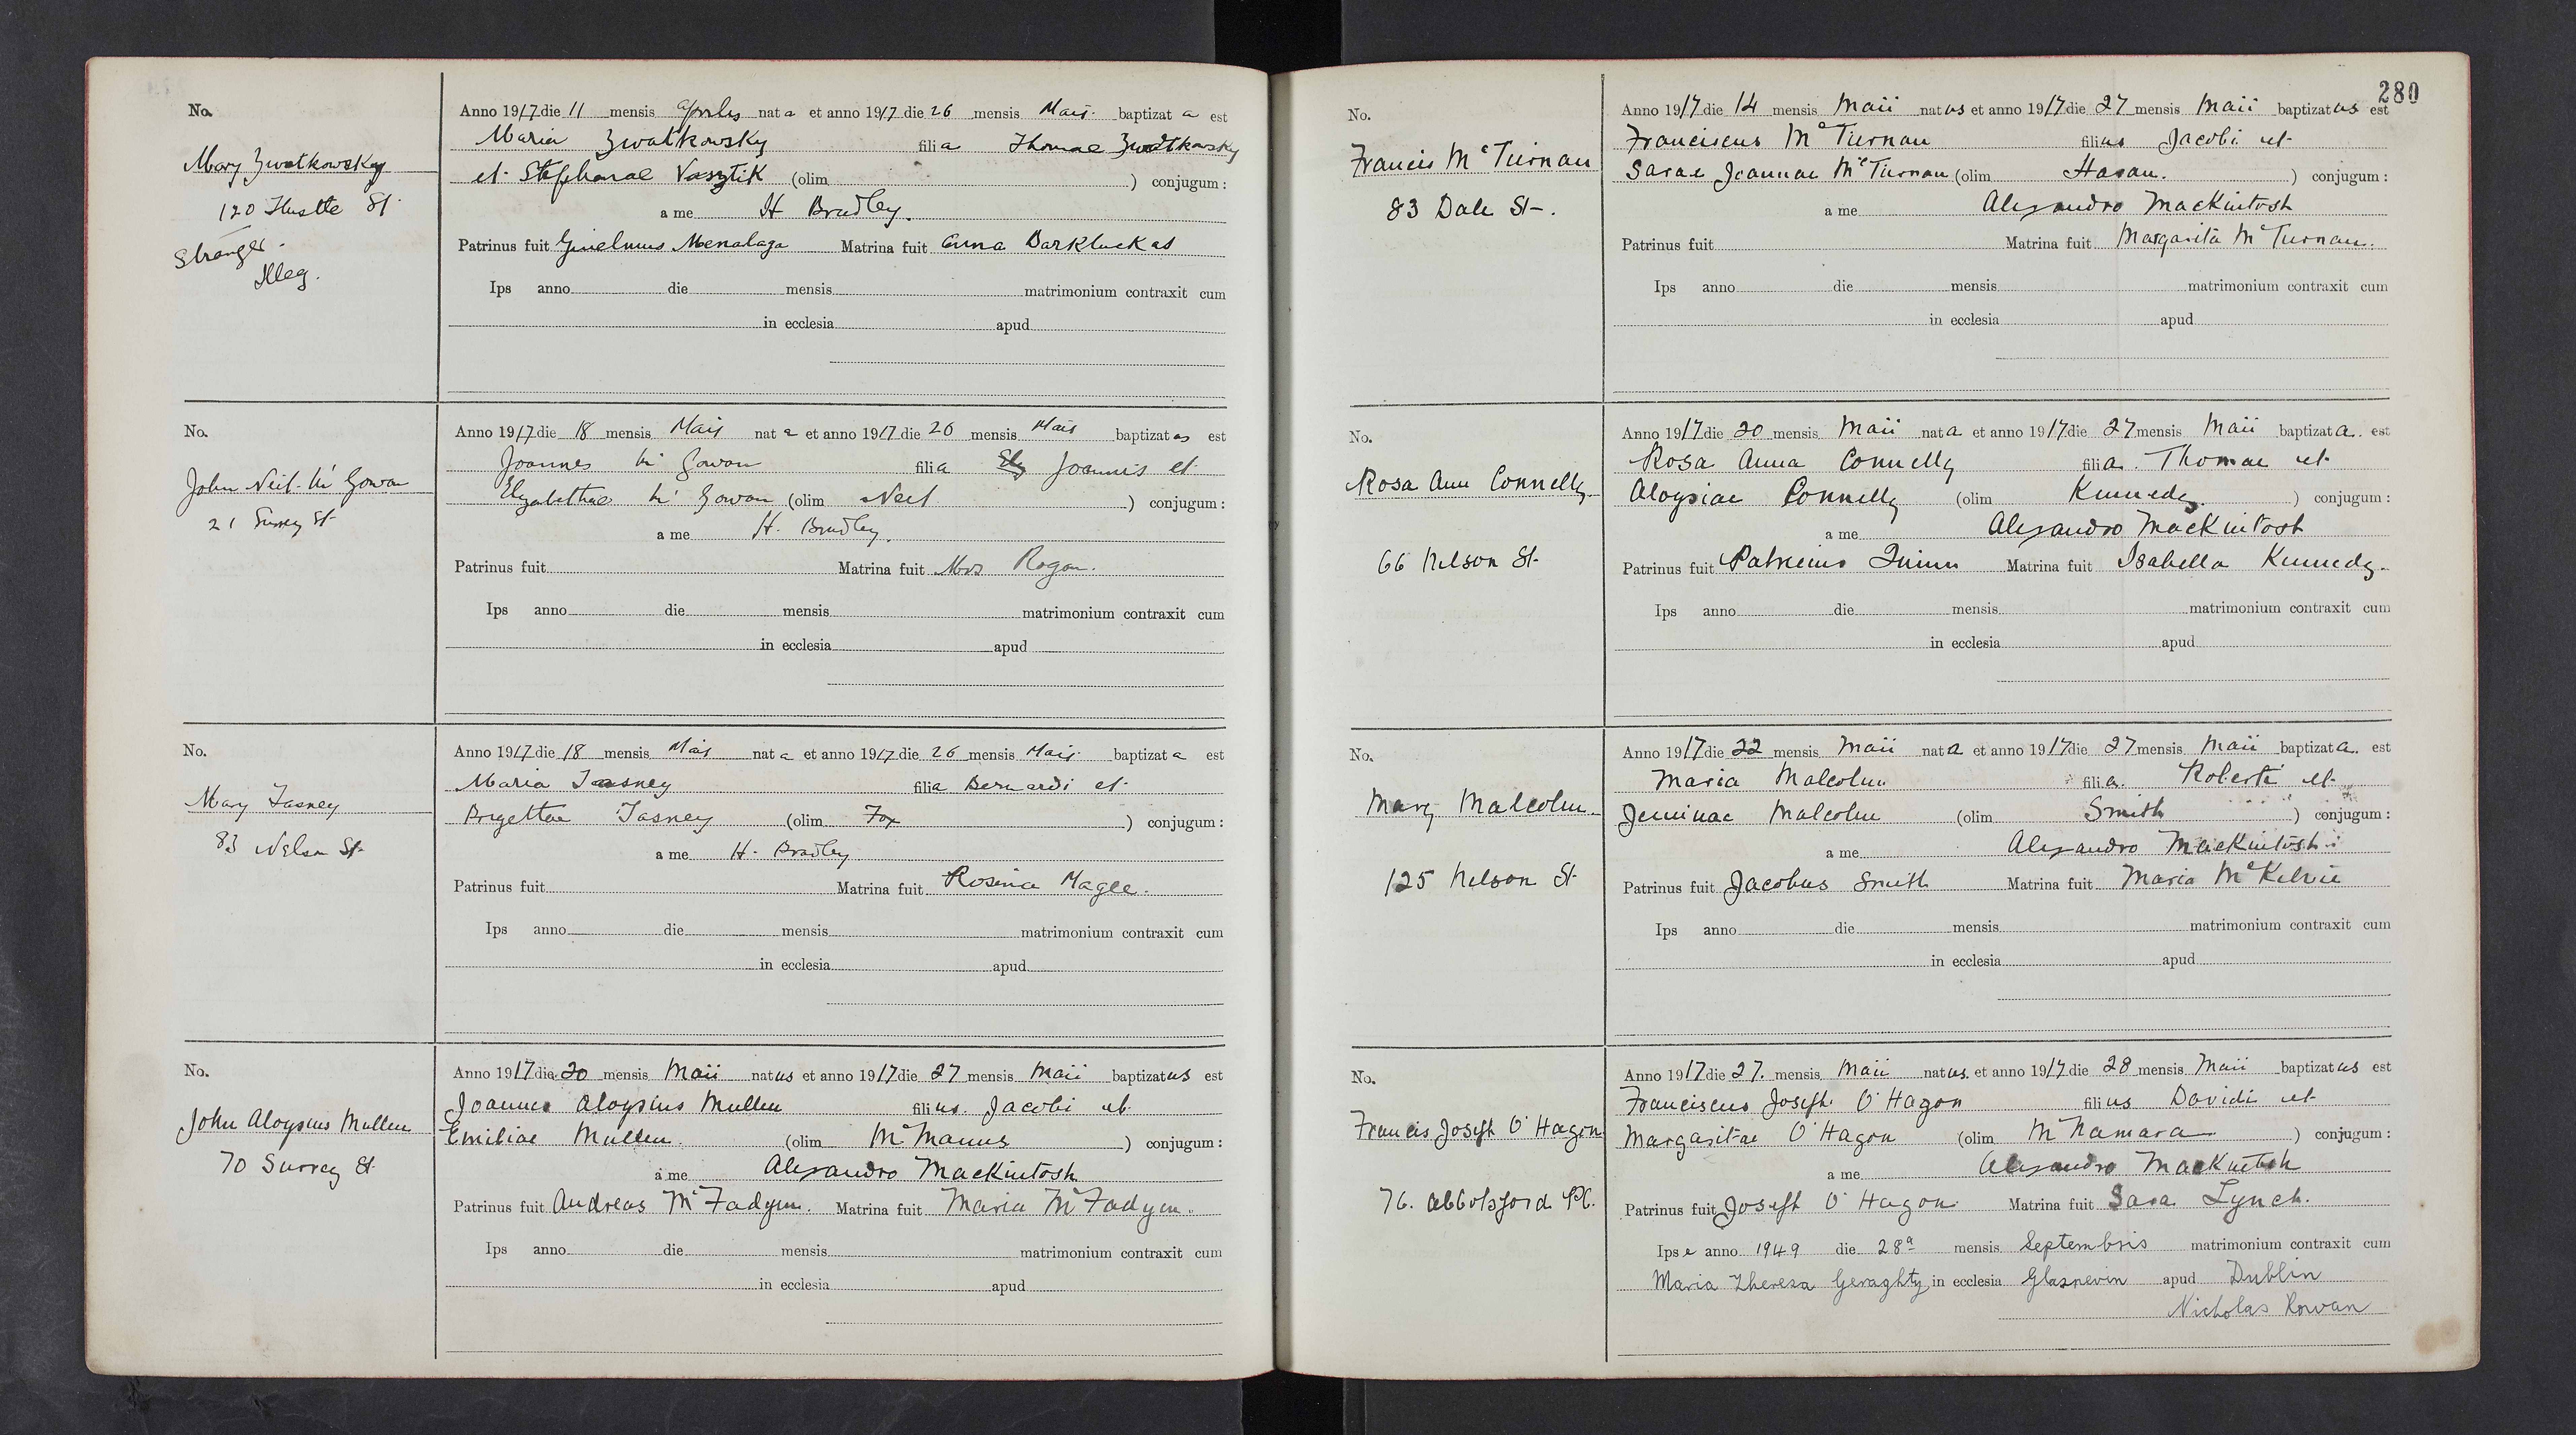 No.
Mary Zwatkowsky
120 Hustle St.
Stranger.
Illeg.
Anno 1917 die 11 mensis Aprilis nat a et anno 1917 die 26 mensis Maii baptizat a est
Maria Zwatkowsky filia Thomae Zwatkowsky
et Stephanae Vasztik (olim ) conjugum :
a me H Bradley.
Patrinus fuit Guielmus Menalaga Matrina fuit Anna Barkluckas
Ips anno die mensis matrimonium contraxit cum
in ecclesia apud
No.
John Neil Mc Gowan
21 Surrey St
Anno 1917 die 18 mensis Maii nat a et anno 1917 die 26 mensis Maii baptizat as est
Joannes Mc Gowan filia Joannis et
Elizabethae Mc Gowan (olim Neil ) conjugum :
a me H. Bradley.
Patrinus fuit Matrina fuit Mrs Rogan.
Ips anno die mensis matrimonium contraxit cum
in ecclesia apud
No.
Mary Tasney
83 Nelson St
Anno 1917 die 18 mensis Maii nat a et anno 1917 die 26 mensis Maii baptizat a est
Maria Tasney filia Bernardi et
Brigettae Tasney (olim Fox ) conjugum :
a me H. Bradley
Patrinus fuit Matrina fuit Rosina Magee.
Ips anno die mensis matrimonium contraxit cum
in ecclesia apud
No.
John Aloysius Mullen
70 Surrey St.
Anno 1917 die 20 mensis Maii natus et anno 1917 die 27 mensis Maii baptizatus est
Joannes Aloysius Mullen filius Jacobi et
Emiliae Mullen. (olim McManus ) conjugum :
a me Alexandro Mackintosh
Patrinus fuit Andreas McFadyen. Matrina fuit Maria McFadyen.
Ips anno die mensis matrimonium contraxit cum
in ecclesia apud
280
No.
Francis McTiernan
83 Dale St.
Anno 1917 die 14 mensis Maii natus et anno 1917 die 27 mensis Maii baptizatus est
Franciscus McTiernan filius Jacobi et
Sarae Joannae McTiernan (olim Haran. ) conjugum :
a me Alexandro Mackintosh
Patrinus fuit Matrina fuit Margarita McTiernan.
Ips anno die mensis matrimonium contraxit cum
in ecclesia apud
No.
Rosa Ann Connelly
66 Nelson St.
Anno 1917 die 20 mensis Maii nata et anno 1917 die 27 mensis Maii baptizata. est
Rosa Anna Connelly filia. Thomae et
Aloysiae Connelly (olim Kennedy. ) conjugum :
a me Alexandro Mackintosh
Patrinus fuit Patricius Quinn Matrina fuit Isabella Kennedy.
Ips anno die mensis matrimonium contraxit cum
in ecclesia apud
No.
Mary Malcolm
125 Nelson St
Anno 1917 die 22 mensis Maii nata et anno 1917 die 27 mensis Maii baptizata. est
Maria Malcolm filia. Roberti et
Jeminae Malcolm (olim Smith ) conjugum :
a me Alexandro Mackintosh
Patrinus fuit Jacobus Smith Matrina fuit Maria McKelvie
Ips anno die mensis matrimonium contraxit cum
in ecclesia apud
No.
Francis Joseph O'Hagan
76. Abbotsford Pl.
Anno 1917 die 27. mensis Maii natus. et anno 1917 die 28 mensis Maii baptizatus est
Franciscus Joseph O'Hagan filius Davidis et
Margaritae O'Hagan (olim McNamara ) conjugum :
a me Alexandro Mackintosh
Patrinus fuit Joseph O'Hagan. Matrina fuit Sara Lynch.
Ipse anno 1949 die 28a mensis Septembris matrimonium contraxit cum
Maria Theresa Geraghty in ecclesia Glasnevin apud Dublin
Nicholas Rowan